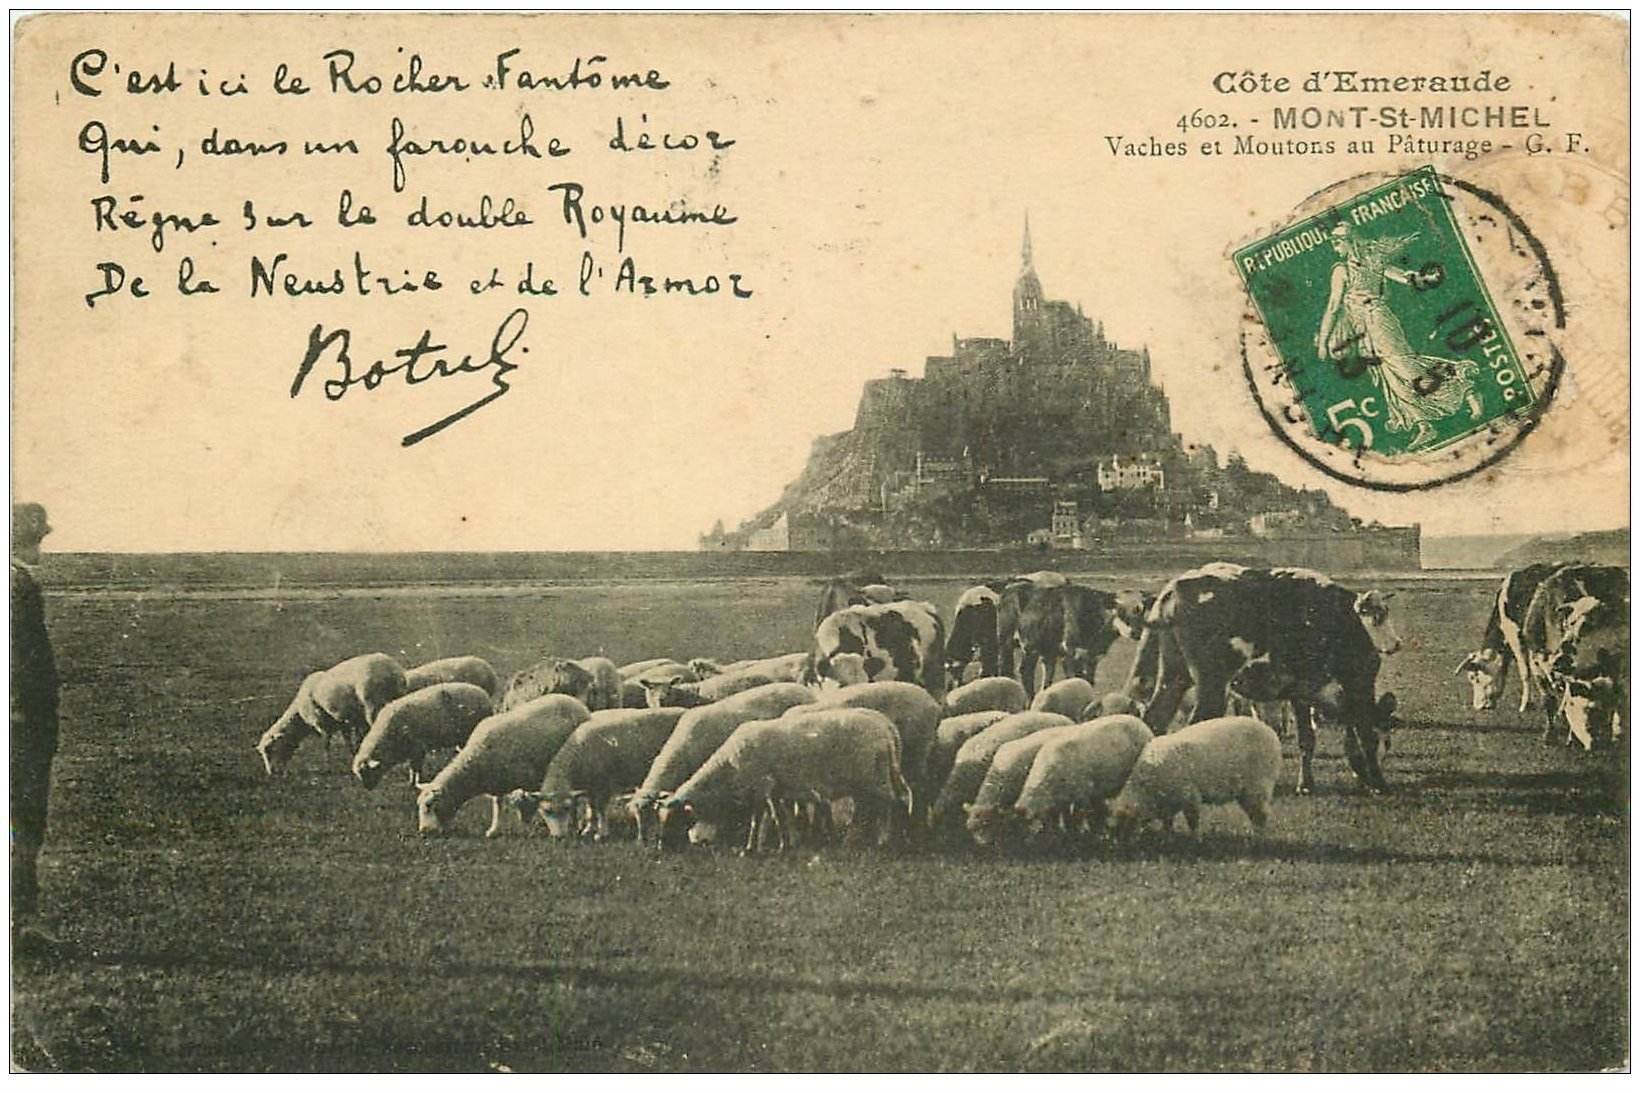 C'est ici le Rocher Fantôme
Qui, dans un farouche décor
Règne sur le double Royaume
De la Neustrie et de l'Armor
Botrel
Côte d'Emeraude
4602. - MONT-St-MICHEL
Vaches et Moutons au Pâturage - G. F.
REPUBLIQUE FRANÇAISE
POSTES
5c